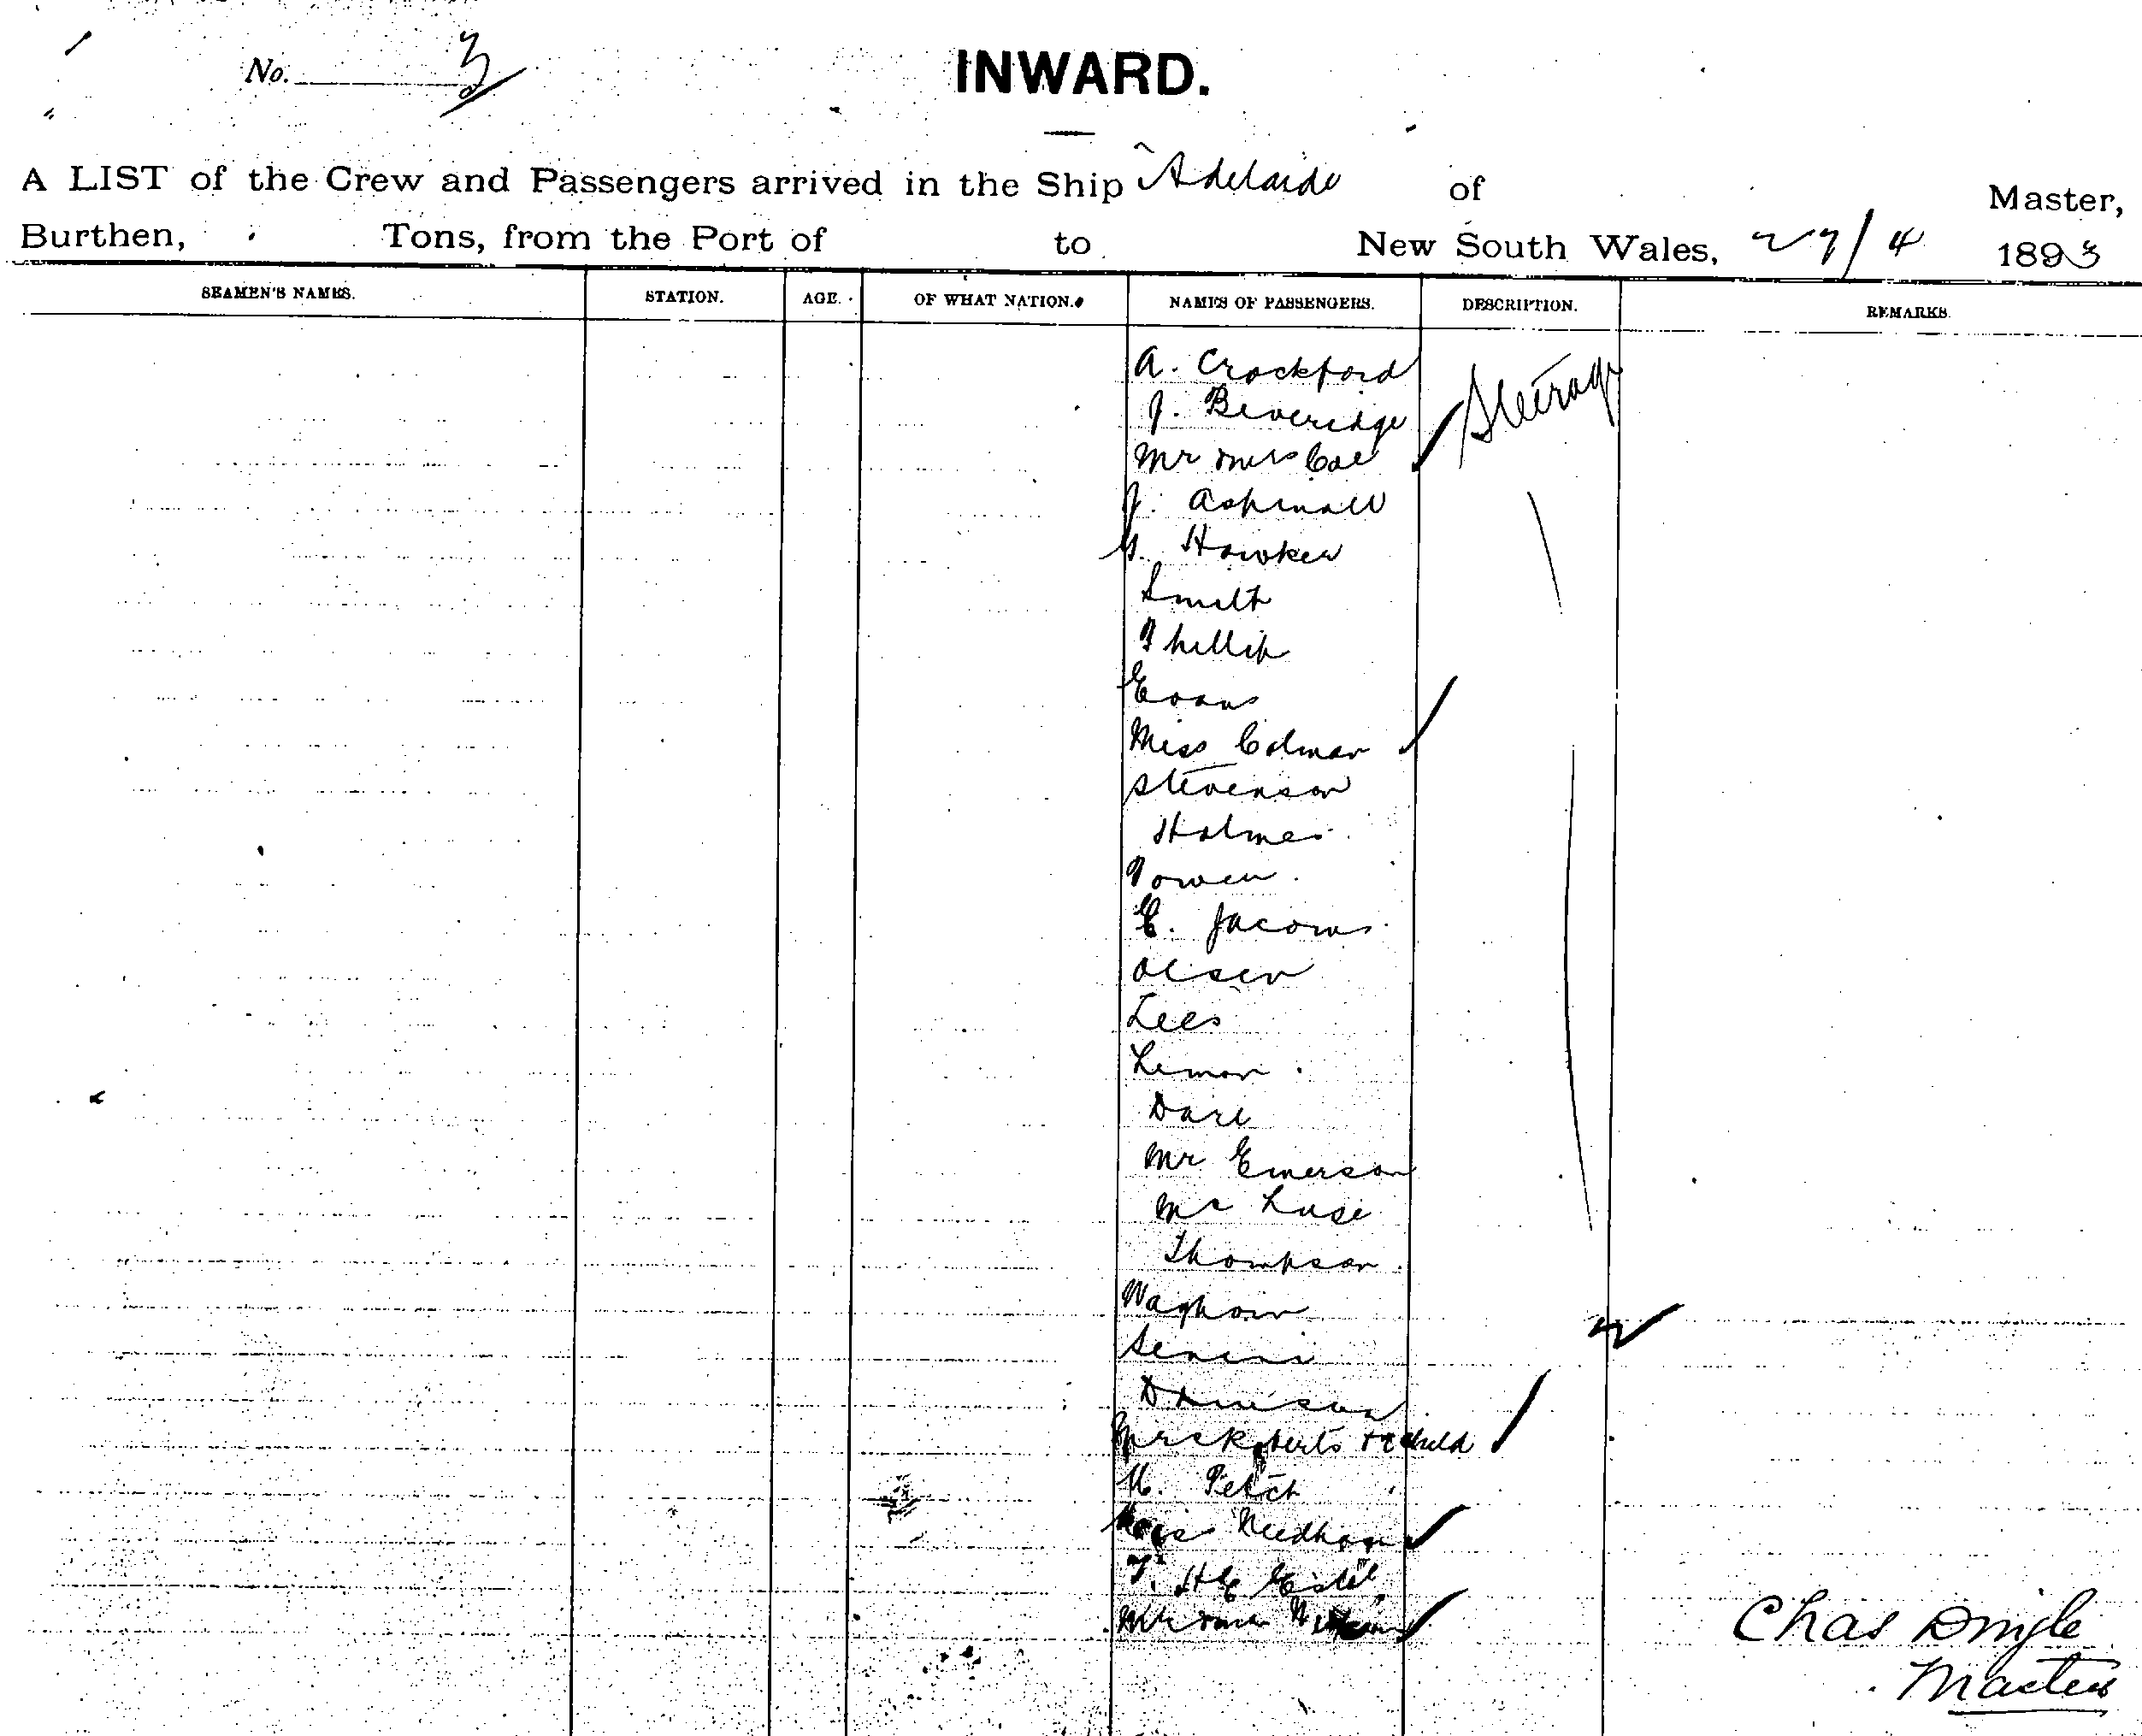 No. 3
INWARD.
A LIST of the Crew and Passengers arrived in the Ship Adelaide of Master,
Burthen, Tons, from the Port of to New South Wales, 27/4 1893
SEAMEN'S NAMES. STATION. AGE. OF WHAT NATION. NAMES OF PASSENGERS. DESCRIPTION. REMARKS.
A. Crockford Steerage
J. Beveridge
Mr Mrs Coe
J. Aspinall
Hawker
Smith
Phillip
Evans
Miss Colman
Stevenson
Holmes
Power
E. Jacoms
Olsen
Lees
Limon
Dare
Mr Emerson
Mr Luse
Thompson
Waghorn
Denison
Mrs Roberts + child
Petch
Miss Needham
H E
Mr
Chas Dingle
Master